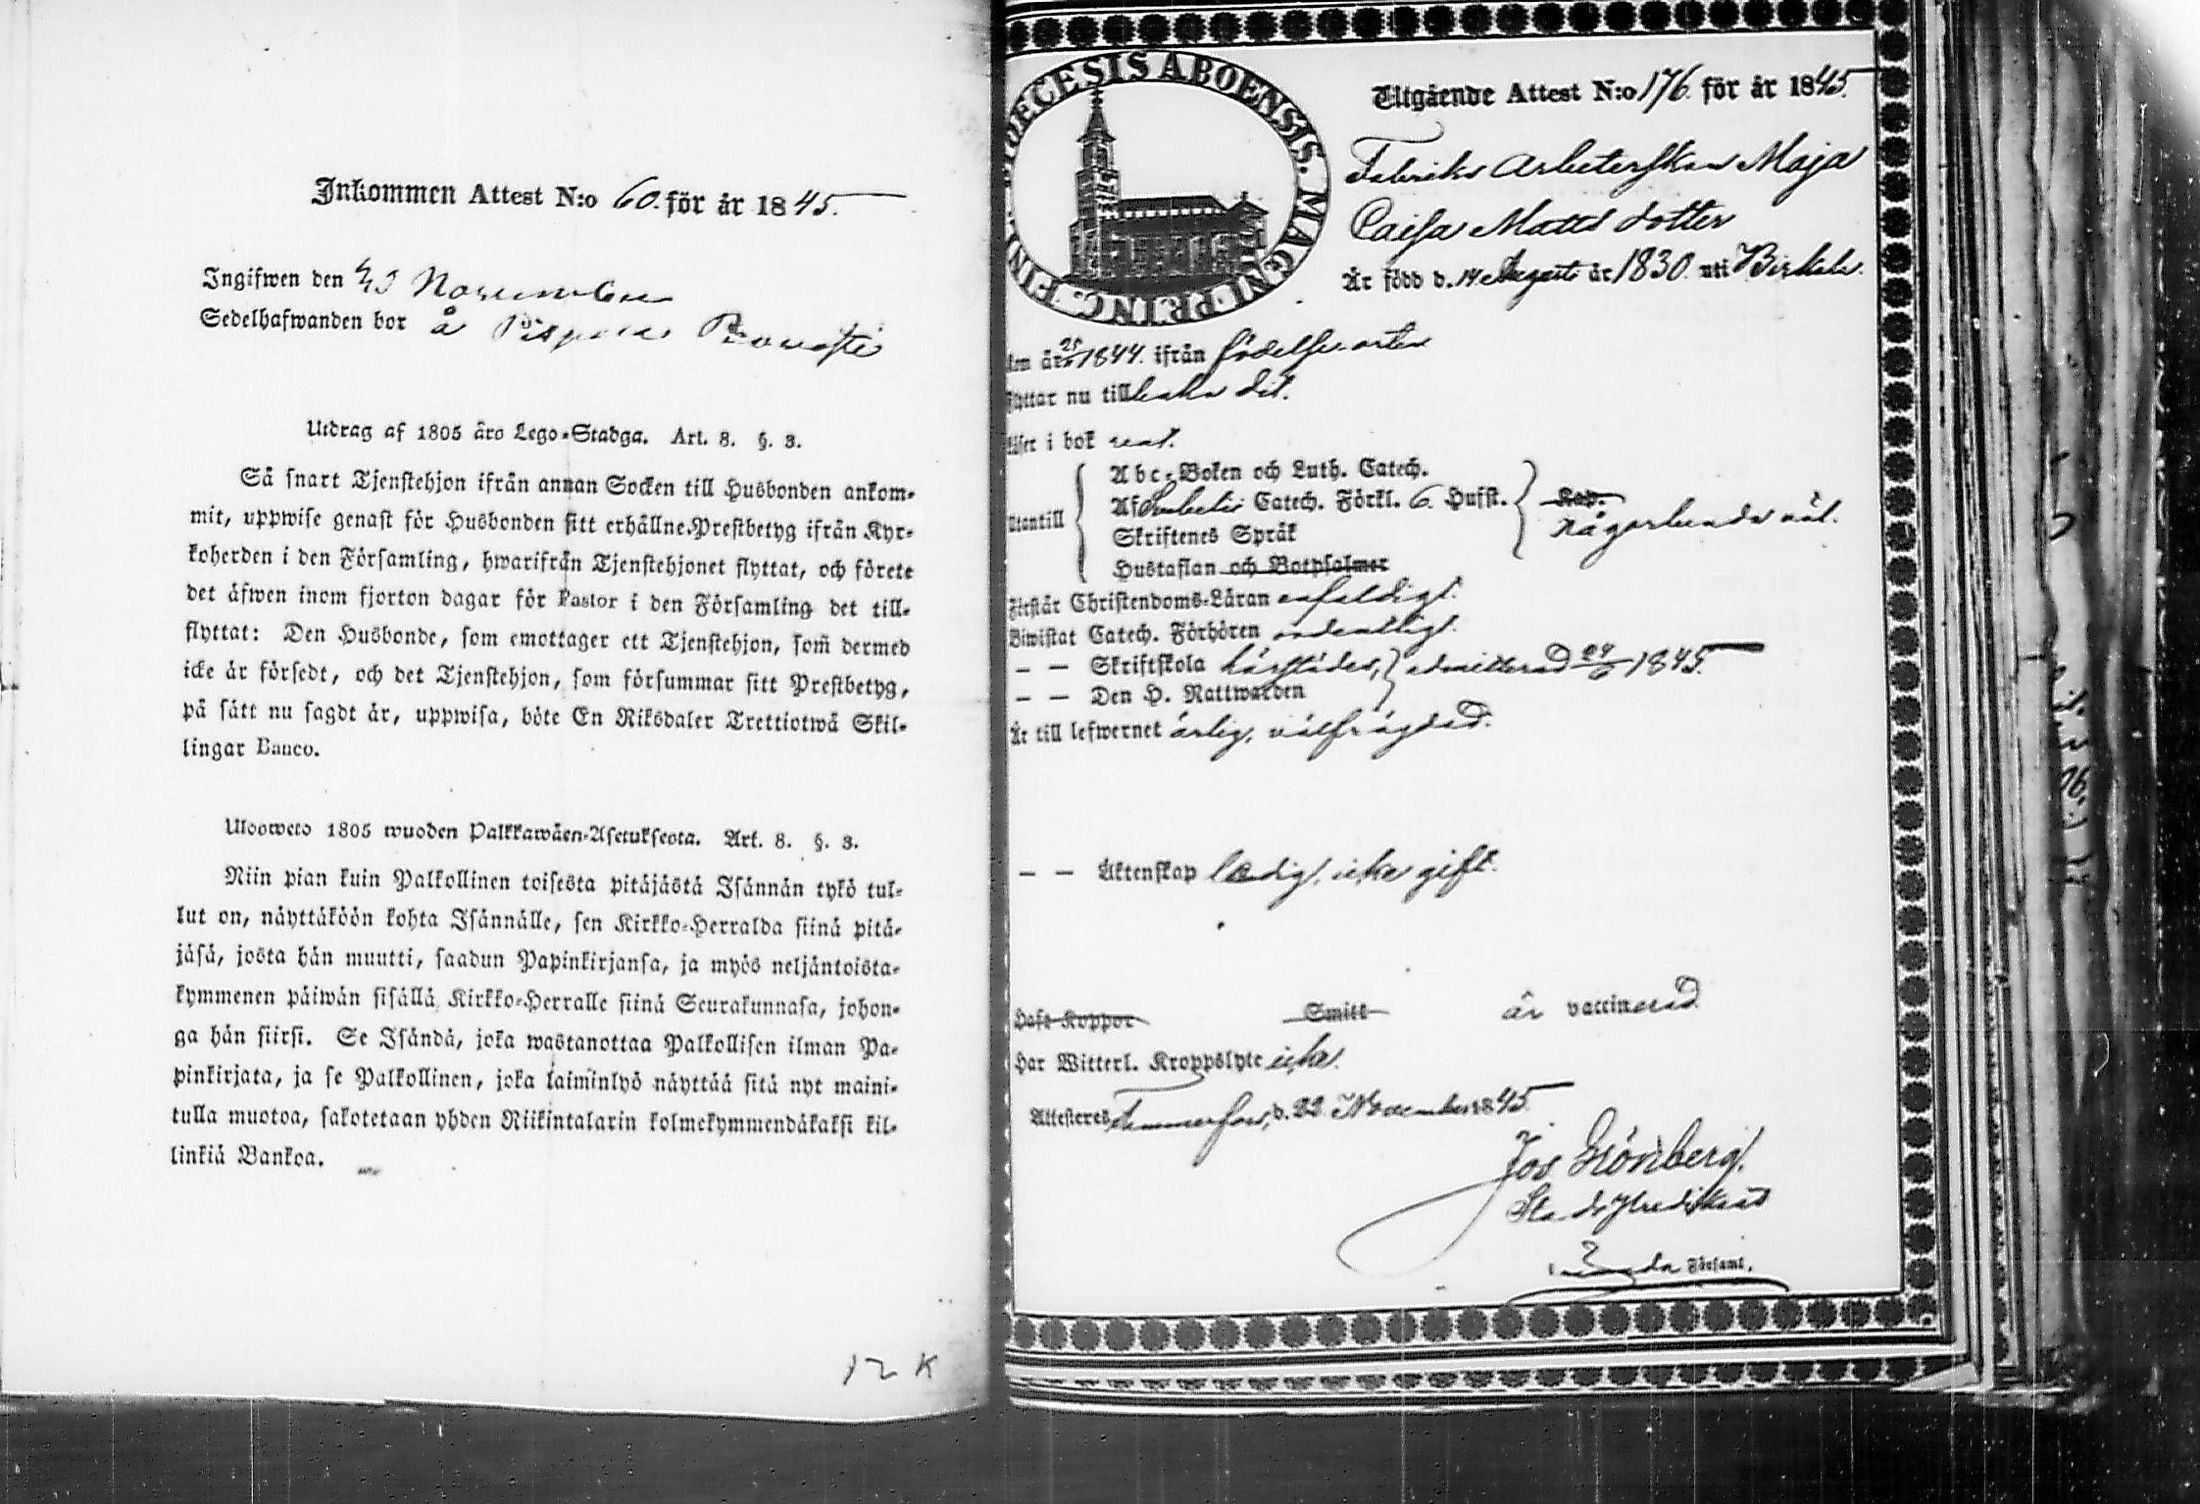 Inkommen Attest N:o 60. för år 1845.
Ingifwen den November
Sedelhafwanden bor å Pispala
Utdrag af 1805 års Lego-Stadga. Art. 8. §. 3.
Så snart Tjenstehjon ifrån annan Socken till Husbonden ankom-
mit, uppwise genast för Husbonden sitt erhållne Prestbetyg ifrån Kyr-
koherden i den Församling, hwarifrån Tjenstehjonet flyttat, och förete
det äfwen inom fjorton dagar för Pastor i den Församling det till-
flyttat: Den Husbonde, som emottager ett Tjenstehjon, som dermed
icke är försedt, och det Tjenstehjon, som försummar sitt Prestbetyg,
på sätt nu sagdt är, uppwisa, böte En Riksdaler Trettiotwå Skil-
lingar Banco.
Ulosweto 1805 wuoden Palkkawäen-Asetuksesta. Art. 8. §. 3.
Niin pian kuin Palkollinen toisesta pitäjästä Isännän tykö tul-
lut on, näyttäköön kohta Isännälle, sen Kirkko-Herralda siinä pitä-
jäsä, josta hän muutti, saadun Papinkirjansa, ja myös neljäntoista-
kymmenen päiwän sisällä Kirkko-Herralle siinä Seurakunnasa, johon-
ga hän siirsi. Se Isändä, joka wastanottaa Palkollisen ilman Pa-
pinkirjata, ja se Palkollinen, joka laiminlyö näyttää sitä nyt maini-
tulla muotoa, sakotetaan yhden Riikintalarin kolmekymmendäkaksi kil-
linkiä Bankoa.
12 K
DIŒCESIS ABOENSIS. MAGNI PRINC. FINL.
Utgående Attest N:o 176. för år 1845.
Fabriks Arbeterskan Maja
Caisa Matts dotter
Är född d. 14 Augusti år 1830. uti Birkala.
kom år 1844. ifrån födelse-orten
flyttar nu tillbaka dit.
Läser i bok rent.
Utantill
Abc-Boken och Luth. Catech.
Af Svebelii Catech. Förkl. 6. Hufst.
Skriftenes Språk
Hustaflan och Botpsalmer
Kap.
någorlunda väl.
Förstår Christendoms-Läran enfaldigt.
Biwistat Catech. Förhören ordentligt.
— — Skriftskola härstädes, admitterad 24/6 1845.
— — Den H. Nattwarden
Är till lefwernet ärlig, välfrägdad.
— — Äktenskap ledig, icke gift.
Haft Koppor Smitt är vaccinerad
Har Witterl. Kroppslyte icke.
Attesteres Tammerfors, d. 22 November 1845.
Jos Grönberg.
Stads Predikant
Församl.